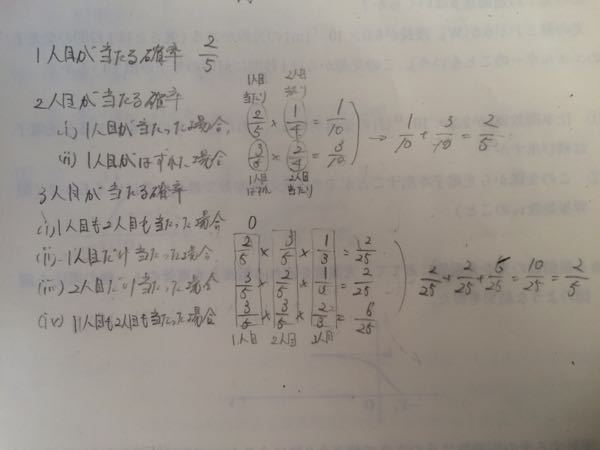 1人目が当たる確率 2/5
1人目 2人目
2人目が当たる確率 当たり 当たり
(i) 1人目が当たった場合 2/5 × 1/4 = 1/10
(ii) 1人目がはずれた場合 3/5 × 2/4 = 3/10 → 1/10 + 3/10 = 2/5
1人目 2人目
はずれ 当たり
3人目が当たる確率
(i) 1人目も2人目も当たった場合 0
(ii) 1人目だけ当たった場合 2/5 × 3/5 × 1/3 = 2/25
(iii) 2人目だけ当たった場合 3/5 × 2/5 × 1/3 = 2/25
(iv) 1人目も2人目も当たった場合 3/5 × 3/5 × 2/3 = 6/25
2/25 + 2/25 + 6/25 = 10/25 = 2/5
1人目 2人目 3人目